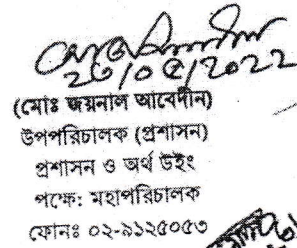 ২৩/০৫/২০২২
(মোঃ জয়নাল আবেদীন)
উপপরিচালক (প্রশাসন)
প্রশাসন ও অর্থ উইং
পক্ষে: মহাপরিচালক
ফোনঃ ০২-৯১২৫০৫৩